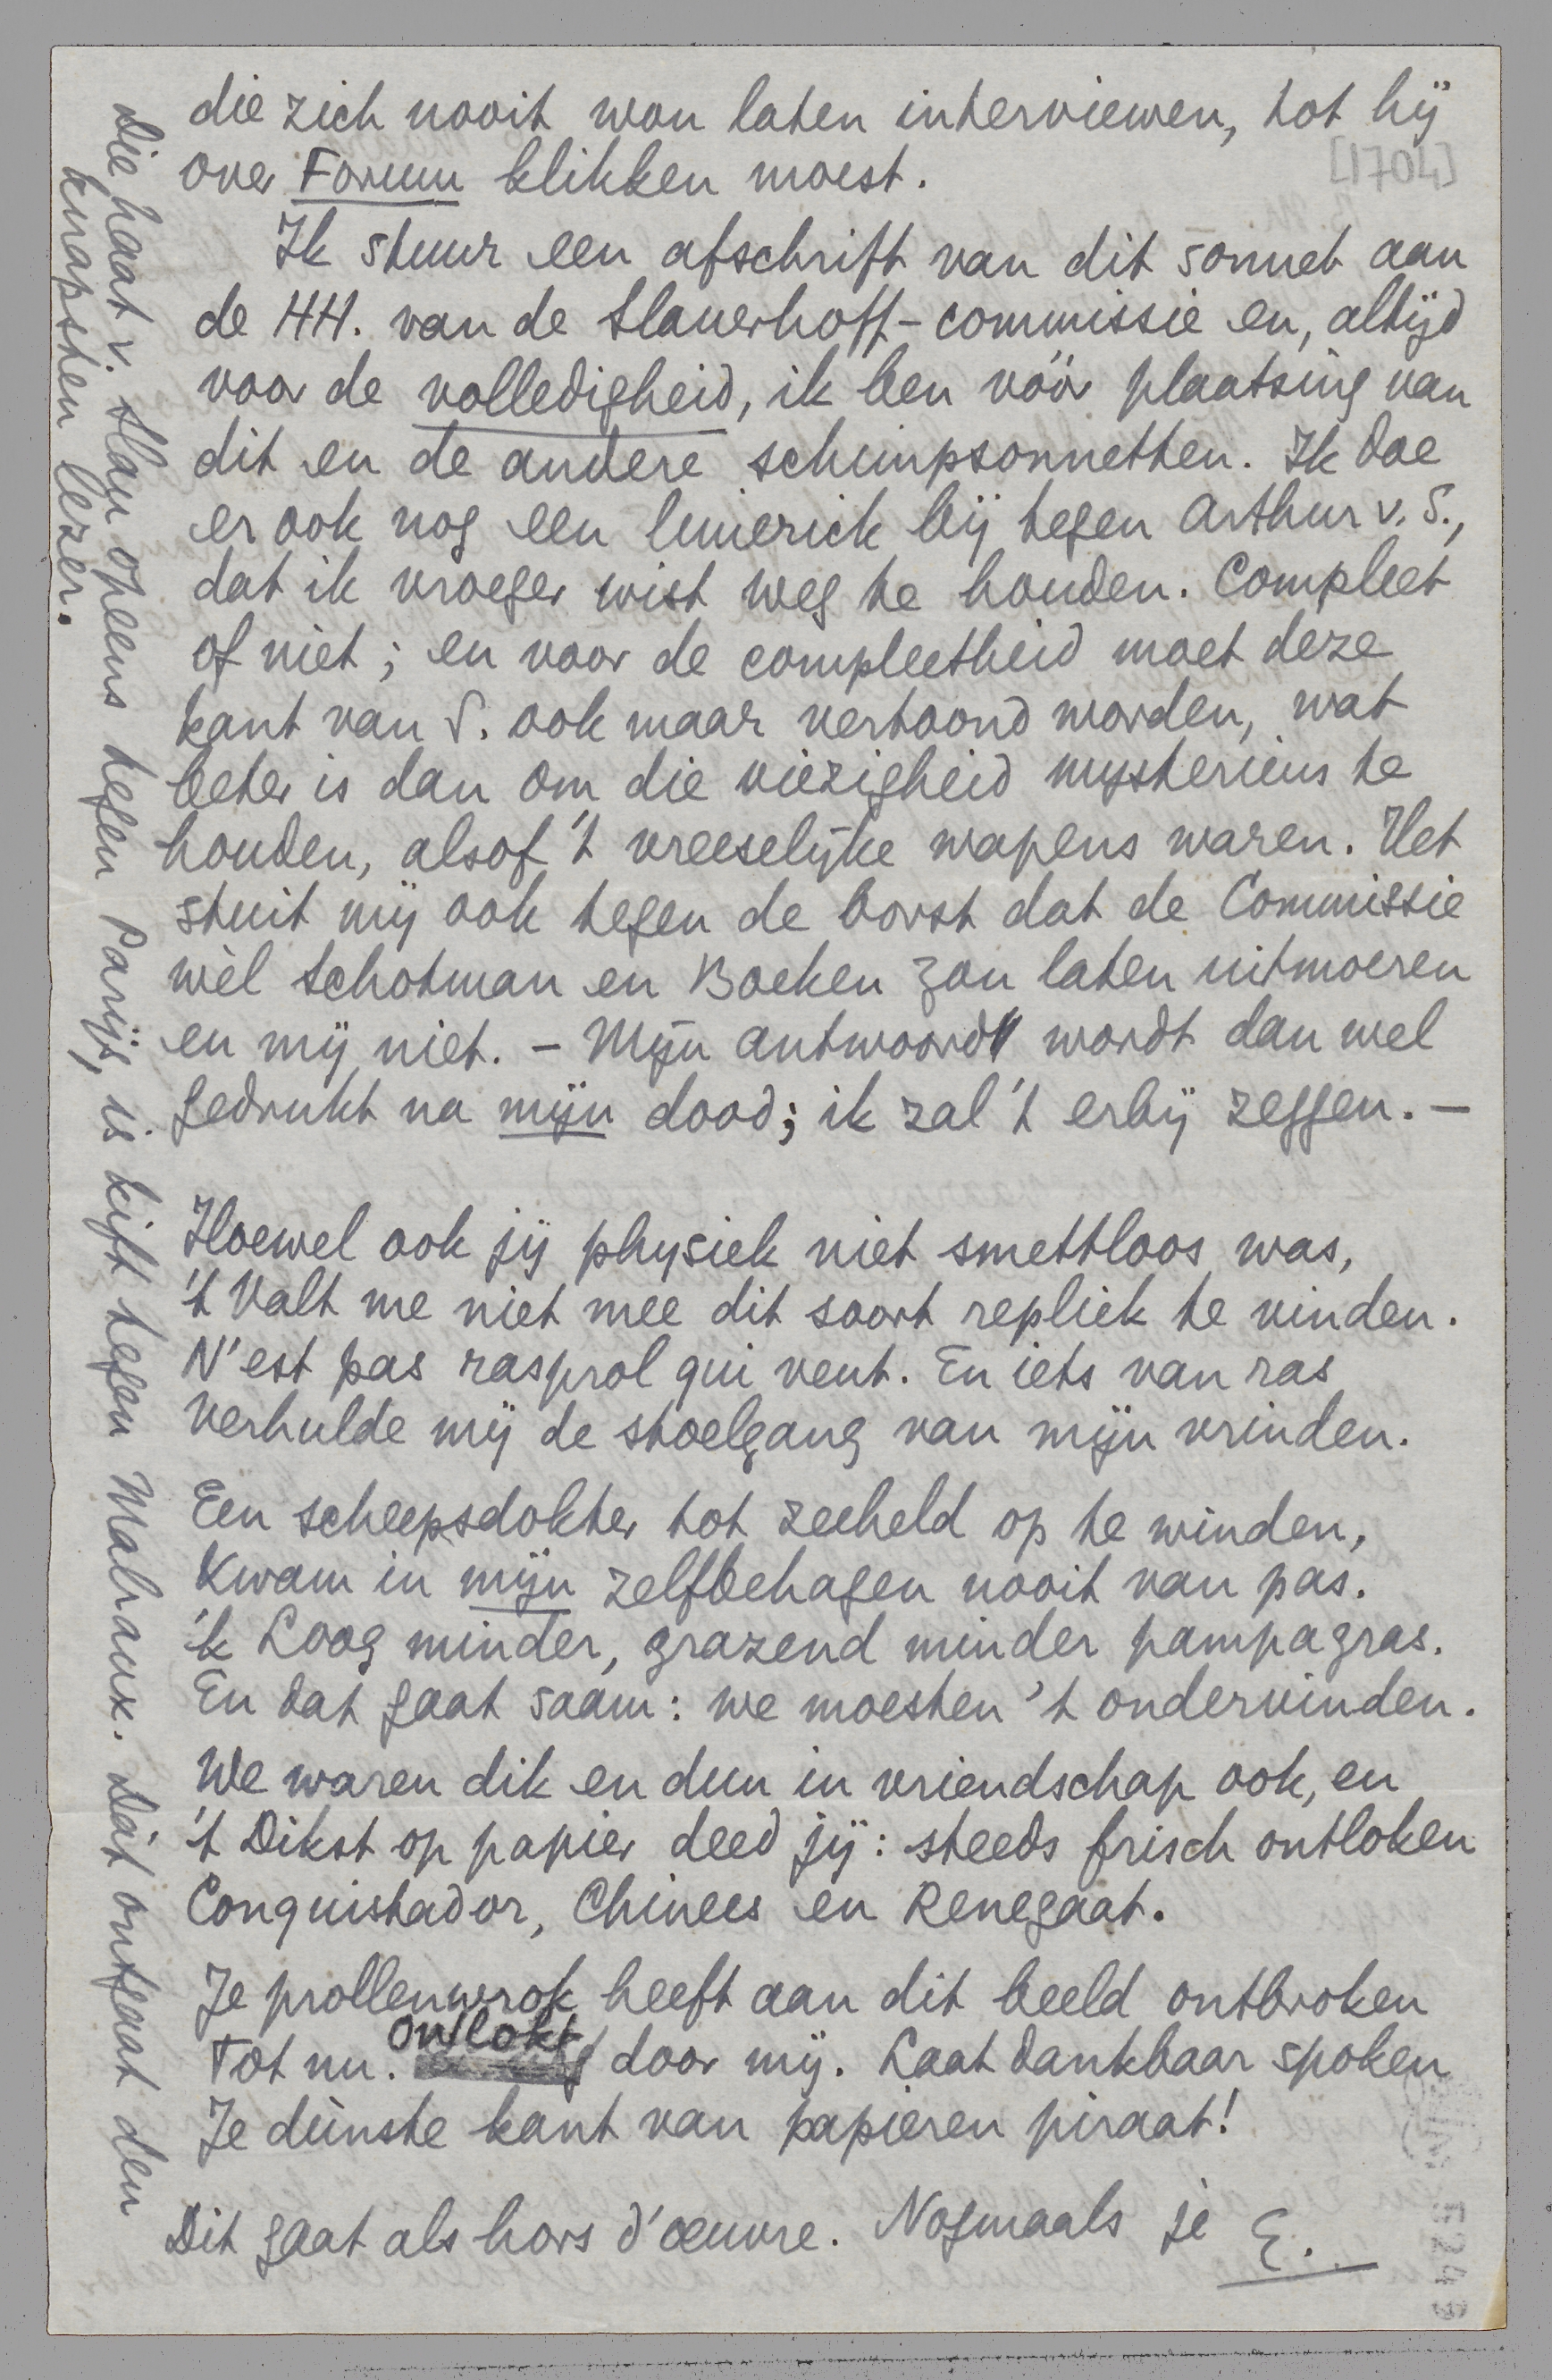 die zich nooit wou laten interviewen, tot hij
over Forum klikken moest.
[1704]
Ik stuur een afschrift van dit sonnet aan
de HH. van de Slauerhoff-commissie en, altijd
voor de volledigheid, ik ben vóór plaatsing van
dit en de andere schimpsonnetten. Ik doe
er ook nog een limerick bij tegen Arthur v. S.,
dat ik vroeger wist weg te houden. Compleet
of niet; en voor de compleetheid moet deze
kant van S. ook maar vertoond worden, wat
beter is dan om die viezigheid mysterieus te
houden, alsof 't vreeselijke wapens waren. Het
stuit mij ook tegen de borst dat de Commissie
wèl Schotman en Boeken zou laten uitmoeren
en mij niet. – Mijn antwoord wordt dan wel
gedrukt na mijn dood; ik zal 't erbij zeggen. –
Hoewel ook jij physiek niet smettloos was,
't Valt me niet mee dit soort repliek te vinden.
N'est pas rasprol qui veut. En iets van ras
Verhulde mij de stoelgang van mijn vrinden.
Een scheepsdokter tot zeeheld op te winden,
Kwam in mijn zelfbehagen nooit van pas.
'k Loog minder, grazend minder pampagras.
En dat gaat saam: we moesten 't ondervinden.
We waren dik en dun in vriendschap ook, en
't Dikst op papier deed jij: steeds frisch ontloken
Conquistador, Chinees en Renegaat.
Je prollenwrok heeft aan dit beeld ontbroken
Tot nu. Ontlokt door mij. Laat dankbaar spoken
Je dùnste kant van papieren piraat!
Dit gaat als hors d'œuvre. Nogmaals je E.
Die haat v. Slau opeens tegen Parijs, is kift tegen Malraux. Dàt ontgaat den
knapsten lezer.